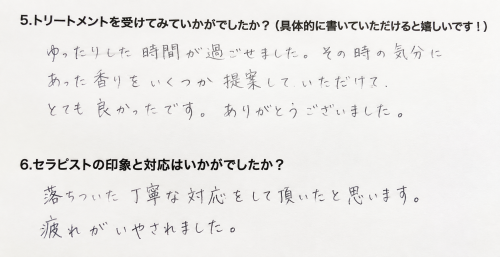 5.トリートメントを受けてみていかがでしたか？（具体的に書いていただけると嬉しいです！）
ゆったりした 時間が過ごせました。その時の気分に
あった香りをいくつか 提案して いただけて、
とても 良かったです。ありがとうございました。
6.セラピストの印象と対応はいかがでしたか？
落ちついた 丁寧な対応をして頂いたと思います。
疲れがいやされました。